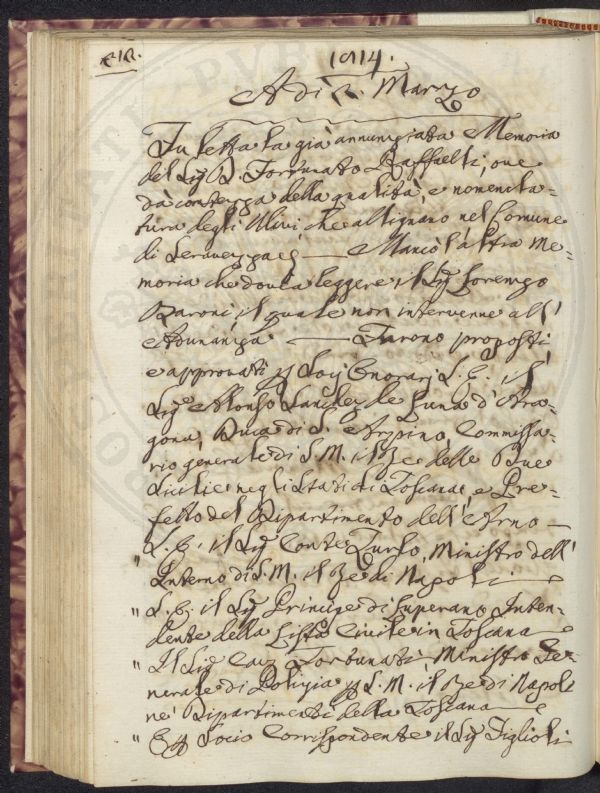 1814.
A di 2. Marzo
Fu letta la già annunziata Memoria
del Sig.r D. Fortunato Raffaelli, ove
dà contezza della qualità, e nomencla-
tura degli Ulivi che allignano nel Comune
di — Mancò l'altra Me-
moria che dovea leggere il Sig.r Lorenzo
Baroni, il quale non intervenne all'
Adunanza — Furono proposti
e approvati p Socj Onorarj S. E. il
Sig.r Alonso Sanchez de Luna d'Ara-
gona, Duca di S. Arpino, Commissa-
rio generale di S. M. il Re delle Due
Sicilie negli Stati di Toscana, e Pre-
fetto del Dipartimento dell'Arno —
" S. E. il Sig.r Conte Zurlo, Ministro dell'
Interno di S. M. il Re di Napoli —
" S. E. il Sig.r Principe di Inten-
dente della Lista Civile in Toscana —
" Il Sig.r Cav. Fortunati, Ministro Ge-
nerale di Polizia p S. M. il Re di Napoli
ne' Dipartimenti della Toscana —
" E p Socio Corrispondente il Sig.r Figlioli